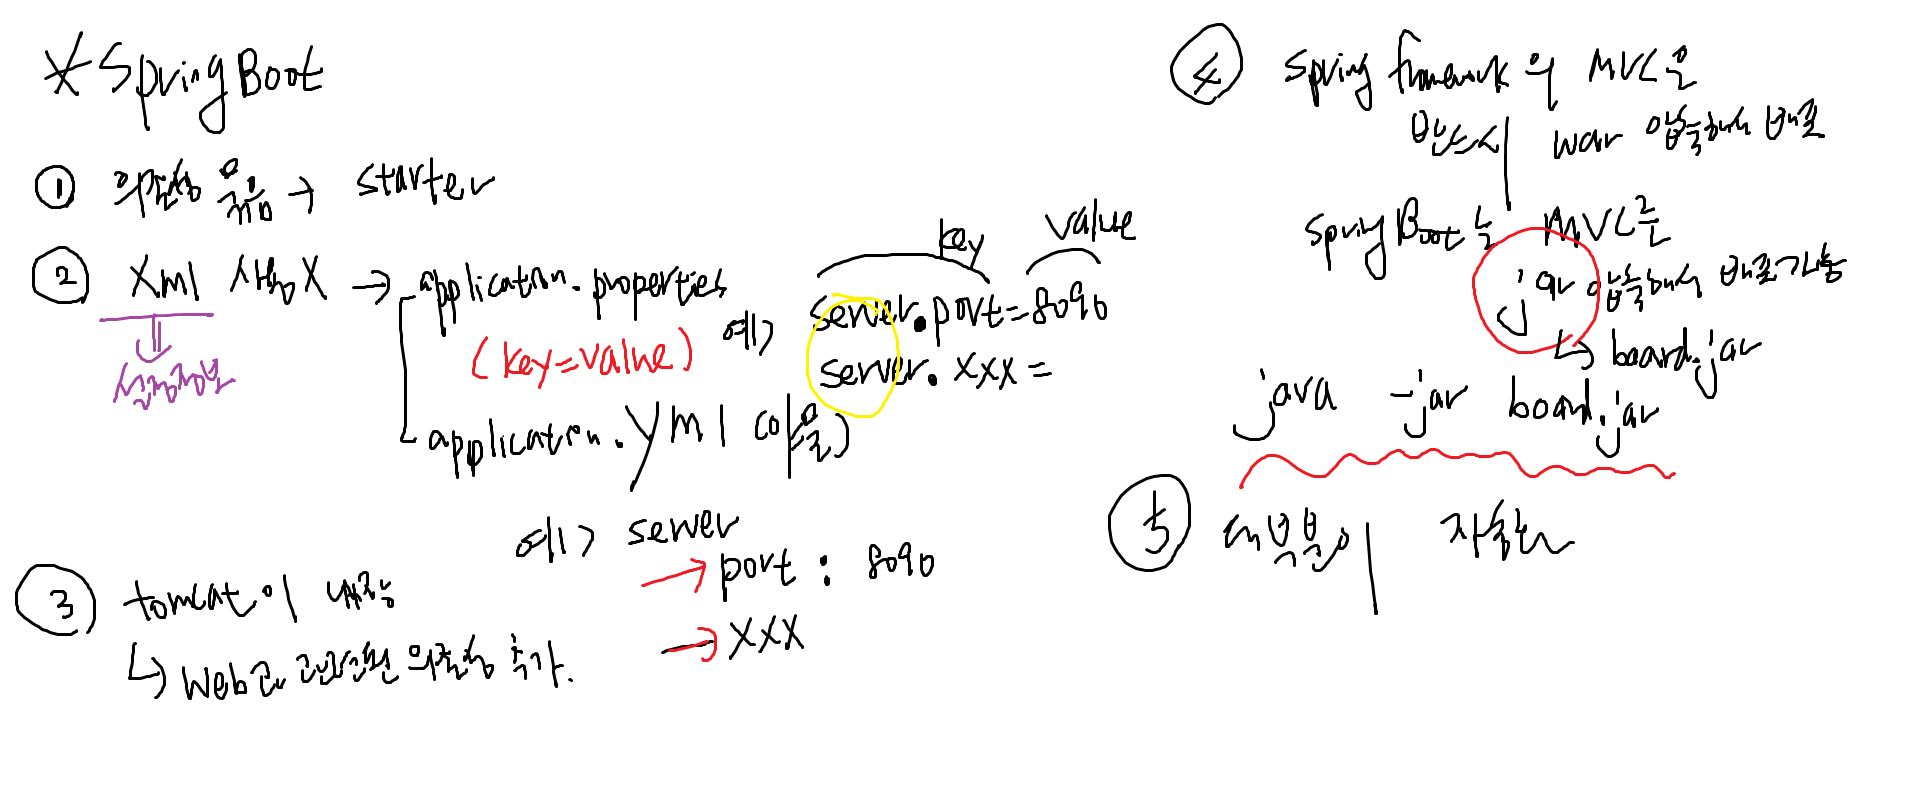 * Spring Boot
① 의존성 묶음 → starter
② Xml 사용X → application.properties
설정정보
(key=value)
key value
예) server.port=8090
server.xxx =
application.yml
예) server
→ port : 8090
→ XXX
③ tomcat이 내장
↳ Web과 관련된 의존성 추가.
④ Spring framework의 MVC은
반드시 war 압축해서 배포
Spring Boot는 MVC를
jar 압축해서 배포가능
↳ board.jar
java -jar board.jar
⑤ 대부분이 자동화